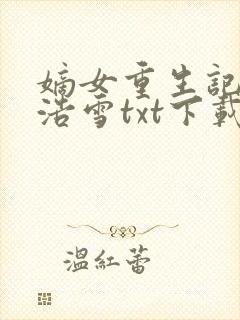 嫡女重生記
浩雪txt下載
溫紅蕾